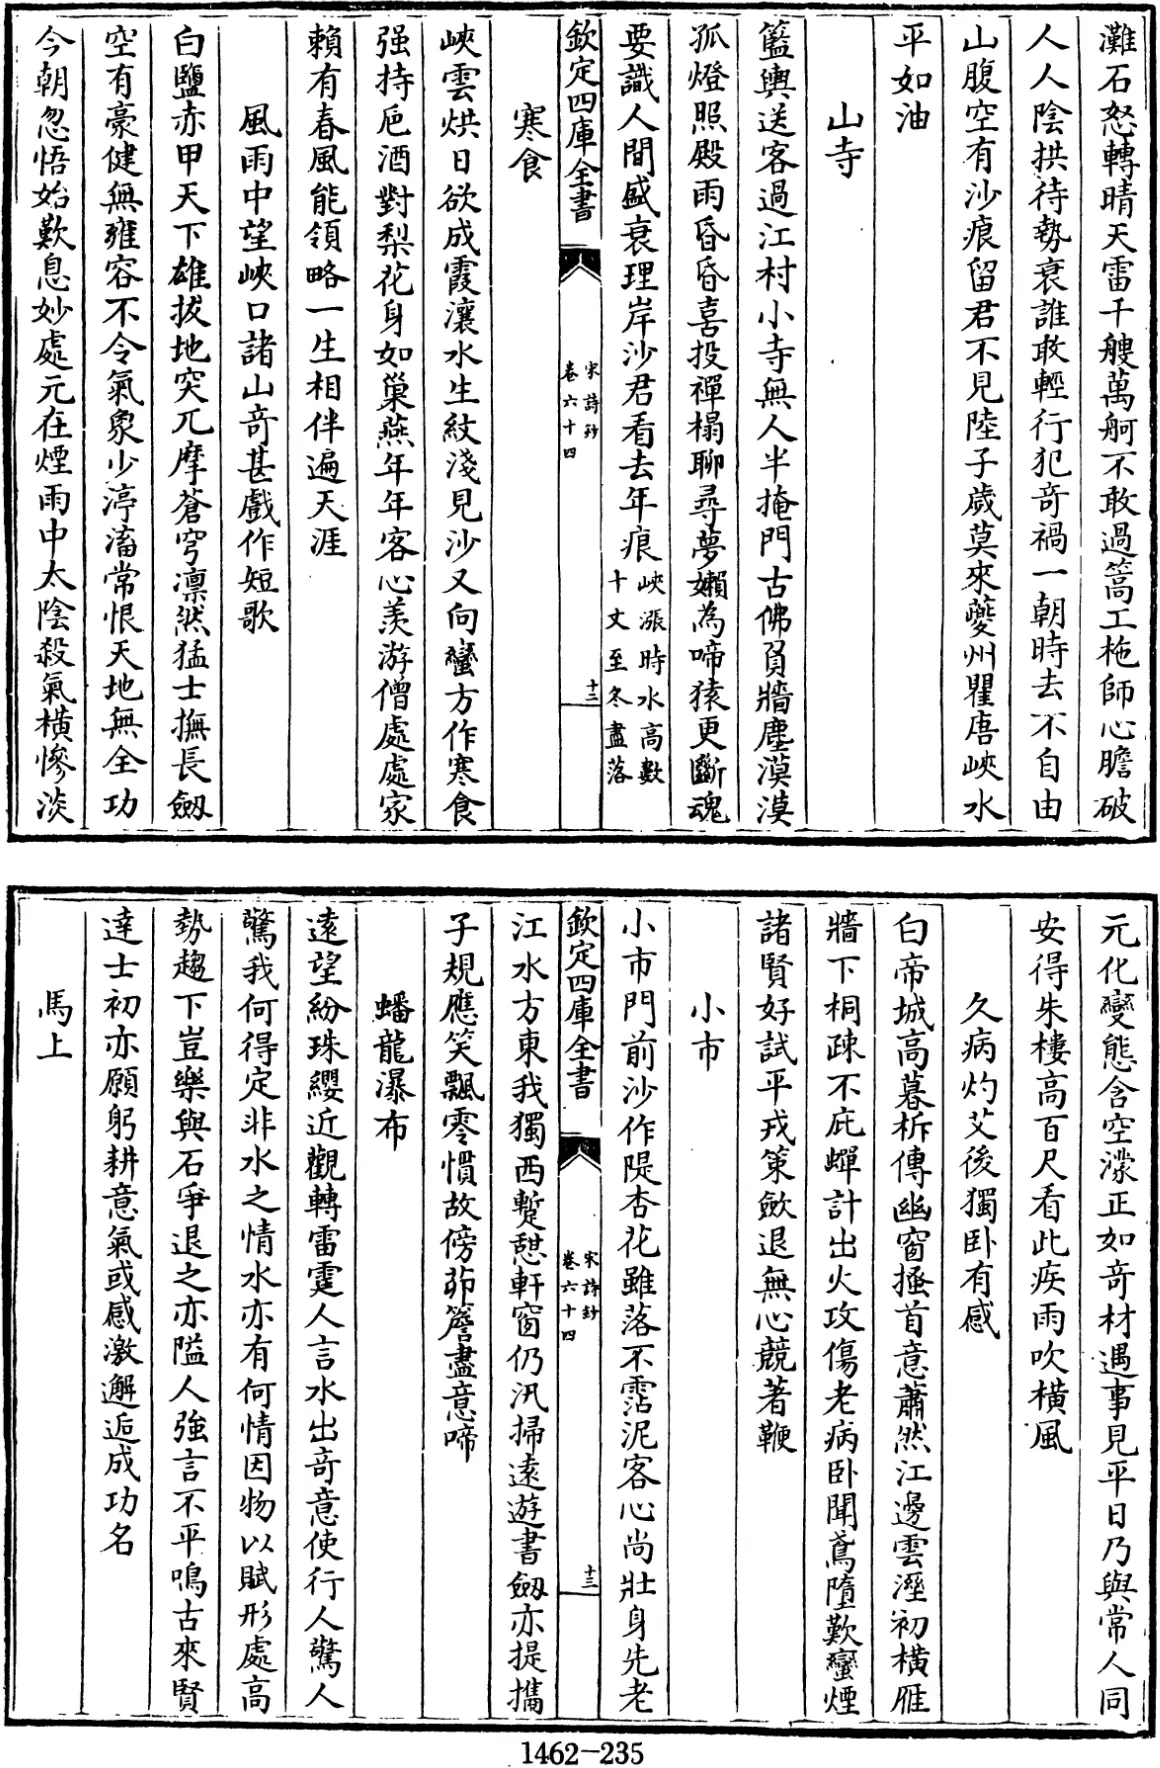 灘石怒轉晴天雷千艘萬舸不敢過篙工柂師心膽破
人人陰拱待勢衰誰敢輕行犯奇禍一朝時去不自由
山腹空有沙痕留君不見陸子歲莫來夔州瞿唐峽水
平如油
山寺
籃輿送客過江村小寺無人半掩門古佛負牆塵漠漠
孤燈照殿雨昏昏喜投禪榻聊尋夢嬾為啼猿更斷魂
要識人間盛衰理岸沙君看去年痕峽漲時水高數
十丈至冬盡落
欽定四庫全書
宋詩鈔
卷六十四
十三
寒食
峽雲烘日欲成霞瀼水生紋淺見沙又向蠻方作寒食
强持卮酒對梨花身如巢燕年年客心羡游僧處處家
賴有春風能領略一生相伴遍天涯
風雨中望峽口諸山奇甚戲作短歌
白鹽赤甲天下雄拔地突兀摩蒼穹凛然猛士撫長劒
空有豪健無雍容不令氣象少渟滀常恨天地無全功
今朝忽悟始歎息妙處元在煙雨中太陰殺氣橫慘淡
元化變態含空濛正如奇材遇事見平日乃與常人同
安得朱樓高百尺看此疾雨吹橫風
久病灼艾後獨卧有感
白帝城高暮柝傳幽窗搔首意蕭然江邊雲溼初橫雁
牆下桐疎不庇蟬計出火攻傷老病卧聞鳶墮歎蠻煙
諸賢好試平戎策歛退無心競著鞭
小市
小市門前沙作隄杏花雖落不霑泥客心尚壯身先老
欽定四庫全書
宋詩鈔
卷六十四
十三
江水方東我獨西蹔憇軒窗仍汛掃遠遊書劒亦提攜
子規應笑飄零慣故傍茆簷盡意啼
蟠龍瀑布
遠望紛珠纓近觀轉雷霆人言水出奇意使行人驚人
驚我何得定非水之情水亦有何情因物以賦形處高
勢趨下豈樂與石爭退之亦隘人強言不平鳴古來賢
達士初亦願躬耕意氣或感激邂逅成功名
馬上
1462-235